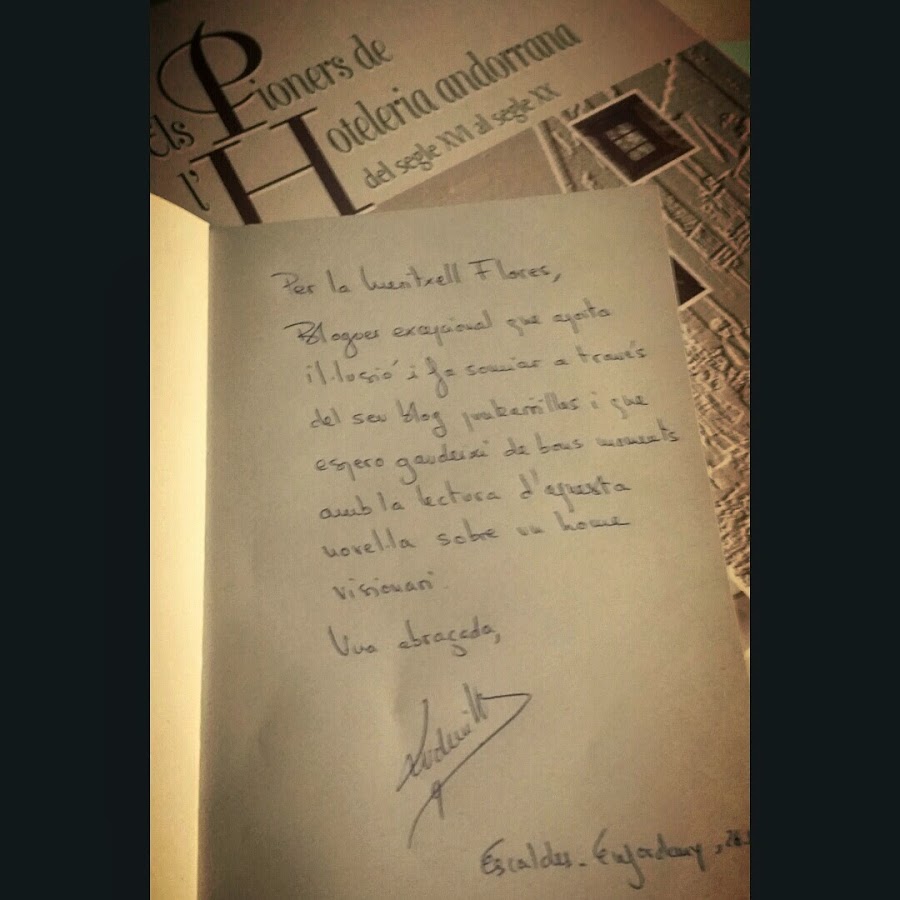 Els Pioners de
l'Hoteleria andorrana
del segle XVI al segle XX
Per la Meritxell Flores,
Bloguer excepcional que aporta
il·lusió i fa somiar a través
del seu blog i que
espero gaudeixi de bons moments
amb la lectura d'aquesta
novel·la sobre un home
visionari.
Una abraçada,
Escaldes-Engordany,